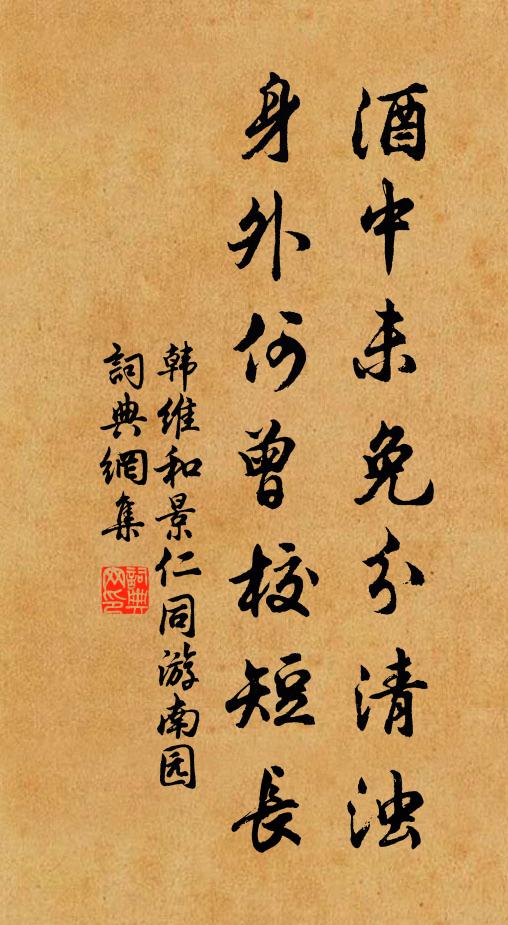 酒中未免分清浊
身外何曾校短長
韩维和景仁同游南园
詞典網集
詞典网印